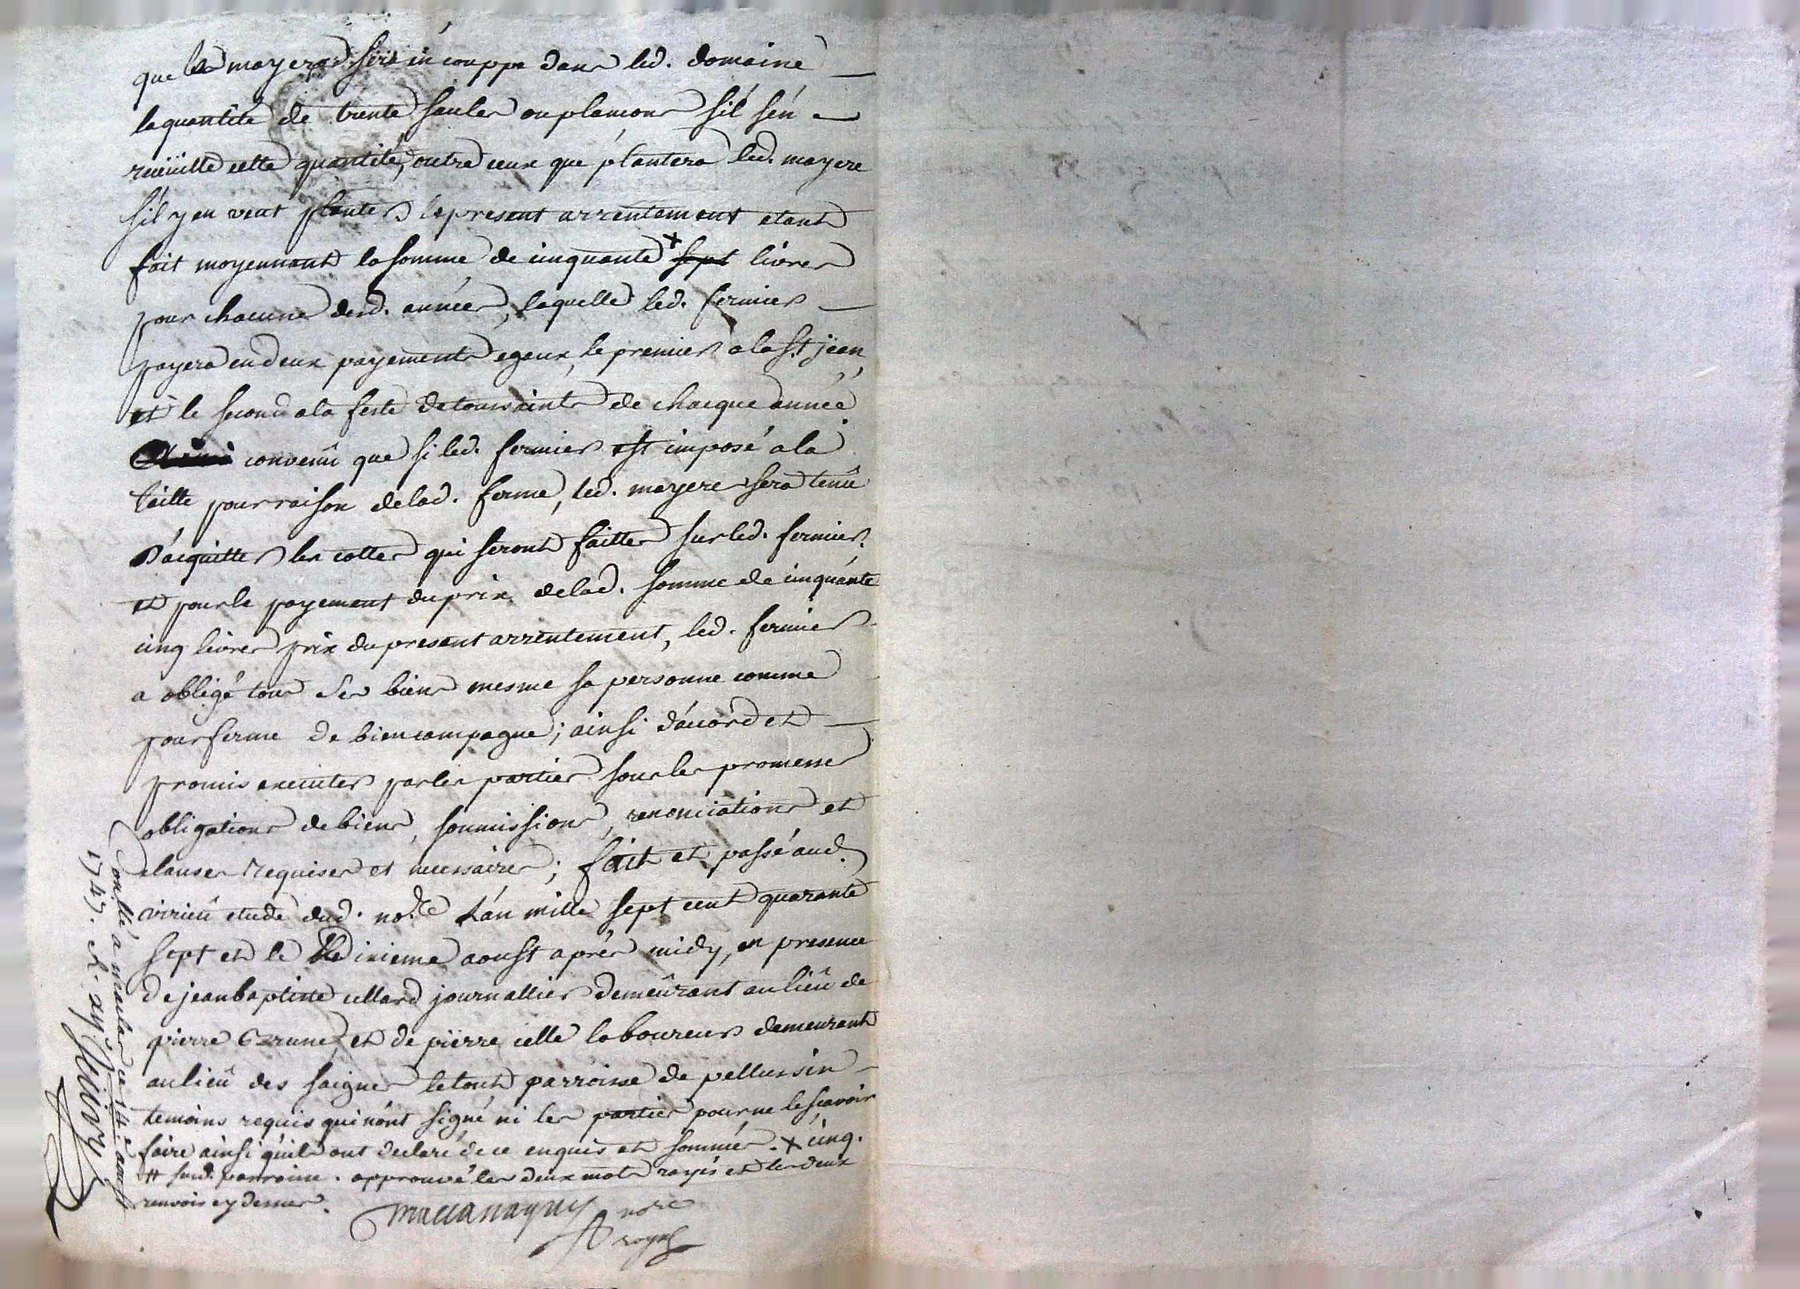 que led. mayere soit in couppe dans led. domaine
la quantité de trente saules ou plansons s'il s'en
receuille cette quantité, outre ceux que plantera led. mayere
s'il y en veut planter, le present arrentement etant
fait moyennant la somme de cinquante + sept livres
pour chacune desd. années, laquelle led. fermier
payera en deux payements egeux, le premier a la st jean,
et le second a la feste de toussaints de chacque année.
convenû que si led. fermier est imposé a la
taille pour raison de lad. ferme, led. mayere sera tenû
d'aquitter les cottes qui seront faittes sur led. fermier.
et pour le payement du prix de lad. somme de cinquante
cinq livres prix du present arrentement, led. fermier
a obligé tous ses biens mesme sa personne comme
pour ferme de bien campagne; ainsi d'acord et
promis executer par les parties sous les promesses
obligations de biens, soumissions, renonciations et
clauses requises et necessaires; fait et passé aud.
virieû etude dud. no.re L'an mille sept cent quarante
sept et le dixieme aoust aprés midy, en presence
de jean baptiste cellard journallier demeûrant au lieû de
pierre et de pierre celle laboureur demeurant
au lieû des saignes le tout parroisse de pellussin
temoins requis qui n'ont signé ni les parties pour ne le scavoir
faire ainsi qu'ils ont declaré de ce enquis et sommés. + cinq.
# sud. parroisse. approuvé les deux mots rayés et les deux
renvois cy dessus.
nore
royal
Conllé à malleval ce 14e aoust
1747.